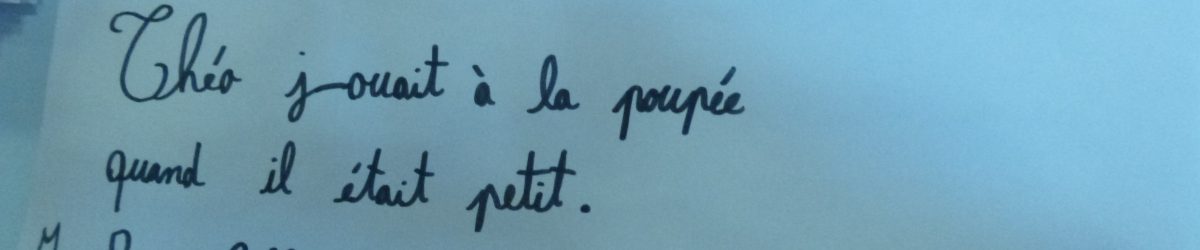 Théo jouait à la poupée
quand il était petit.